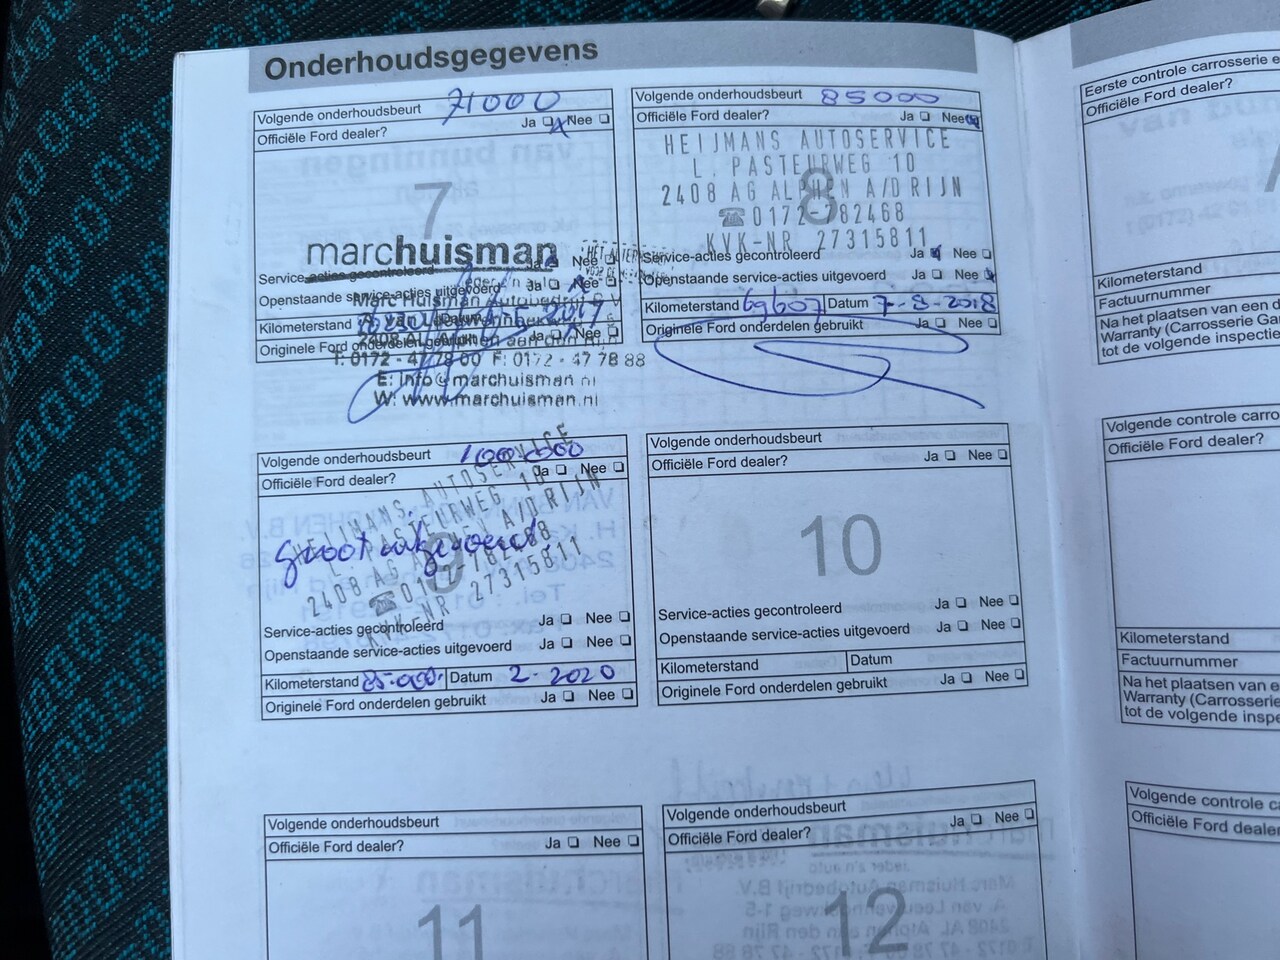 Onderhoudsgegevens
Volgende onderhoudsbeurt 71000
Officiële Ford dealer? Ja Nee
7
marchuisman
Service-acties gecontroleerd Ja Nee
Openstaande service-acties uitgevoerd Ja Nee
Marc Huisman Autobedrijf B.V.
Kilometerstand Datum 2017
Originele Ford onderdelen gebruikt Ja Nee
T: 0172 - 47 78 00 F: 0172 - 47 78 88
E: info@marchuisman.nl
W: www.marchuisman.nl
Volgende onderhoudsbeurt 85000
Officiële Ford dealer? Ja Nee
HEIJMANS AUTOSERVICE
L. PASTEURWEG 10
2408 AG ALPHEN A/D RIJN
8
☎ 0172-782468
KVK-NR 27315811
Service-acties gecontroleerd Ja Nee
Openstaande service-acties uitgevoerd Ja Nee
Kilometerstand 69607 Datum 7-8-2018
Originele Ford onderdelen gebruikt Ja Nee
Volgende onderhoudsbeurt 100.000
Officiële Ford dealer? Ja Nee
HEIJMANS AUTOSERVICE
L. PASTEURWEG 10
2408 AG ALPHEN A/D RIJN
☎ 0172-782468
KVK-NR 27315811
9
Service-acties gecontroleerd Ja Nee
Openstaande service-acties uitgevoerd Ja Nee
Kilometerstand 85.000. Datum 2-2020
Originele Ford onderdelen gebruikt Ja Nee
Volgende onderhoudsbeurt
Officiële Ford dealer? Ja Nee
10
Service-acties gecontroleerd Ja Nee
Openstaande service-acties uitgevoerd Ja Nee
Kilometerstand Datum
Originele Ford onderdelen gebruikt Ja Nee
Volgende onderhoudsbeurt
Officiële Ford dealer? Ja Nee
11
Volgende onderhoudsbeurt
Officiële Ford dealer? Ja Nee
12
Eerste controle carrosserie e
Officiële Ford dealer?
Kilometerstand
Factuurnummer
Na het plaatsen van een d
Warranty (Carrosserie Ga
tot de volgende inspectie
Volgende controle carro
Officiële Ford dealer?
Kilometerstand
Factuurnummer
Na het plaatsen van e
Warranty (Carrosserie
tot de volgende inspe
Volgende controle ca
Officiële Ford dealer